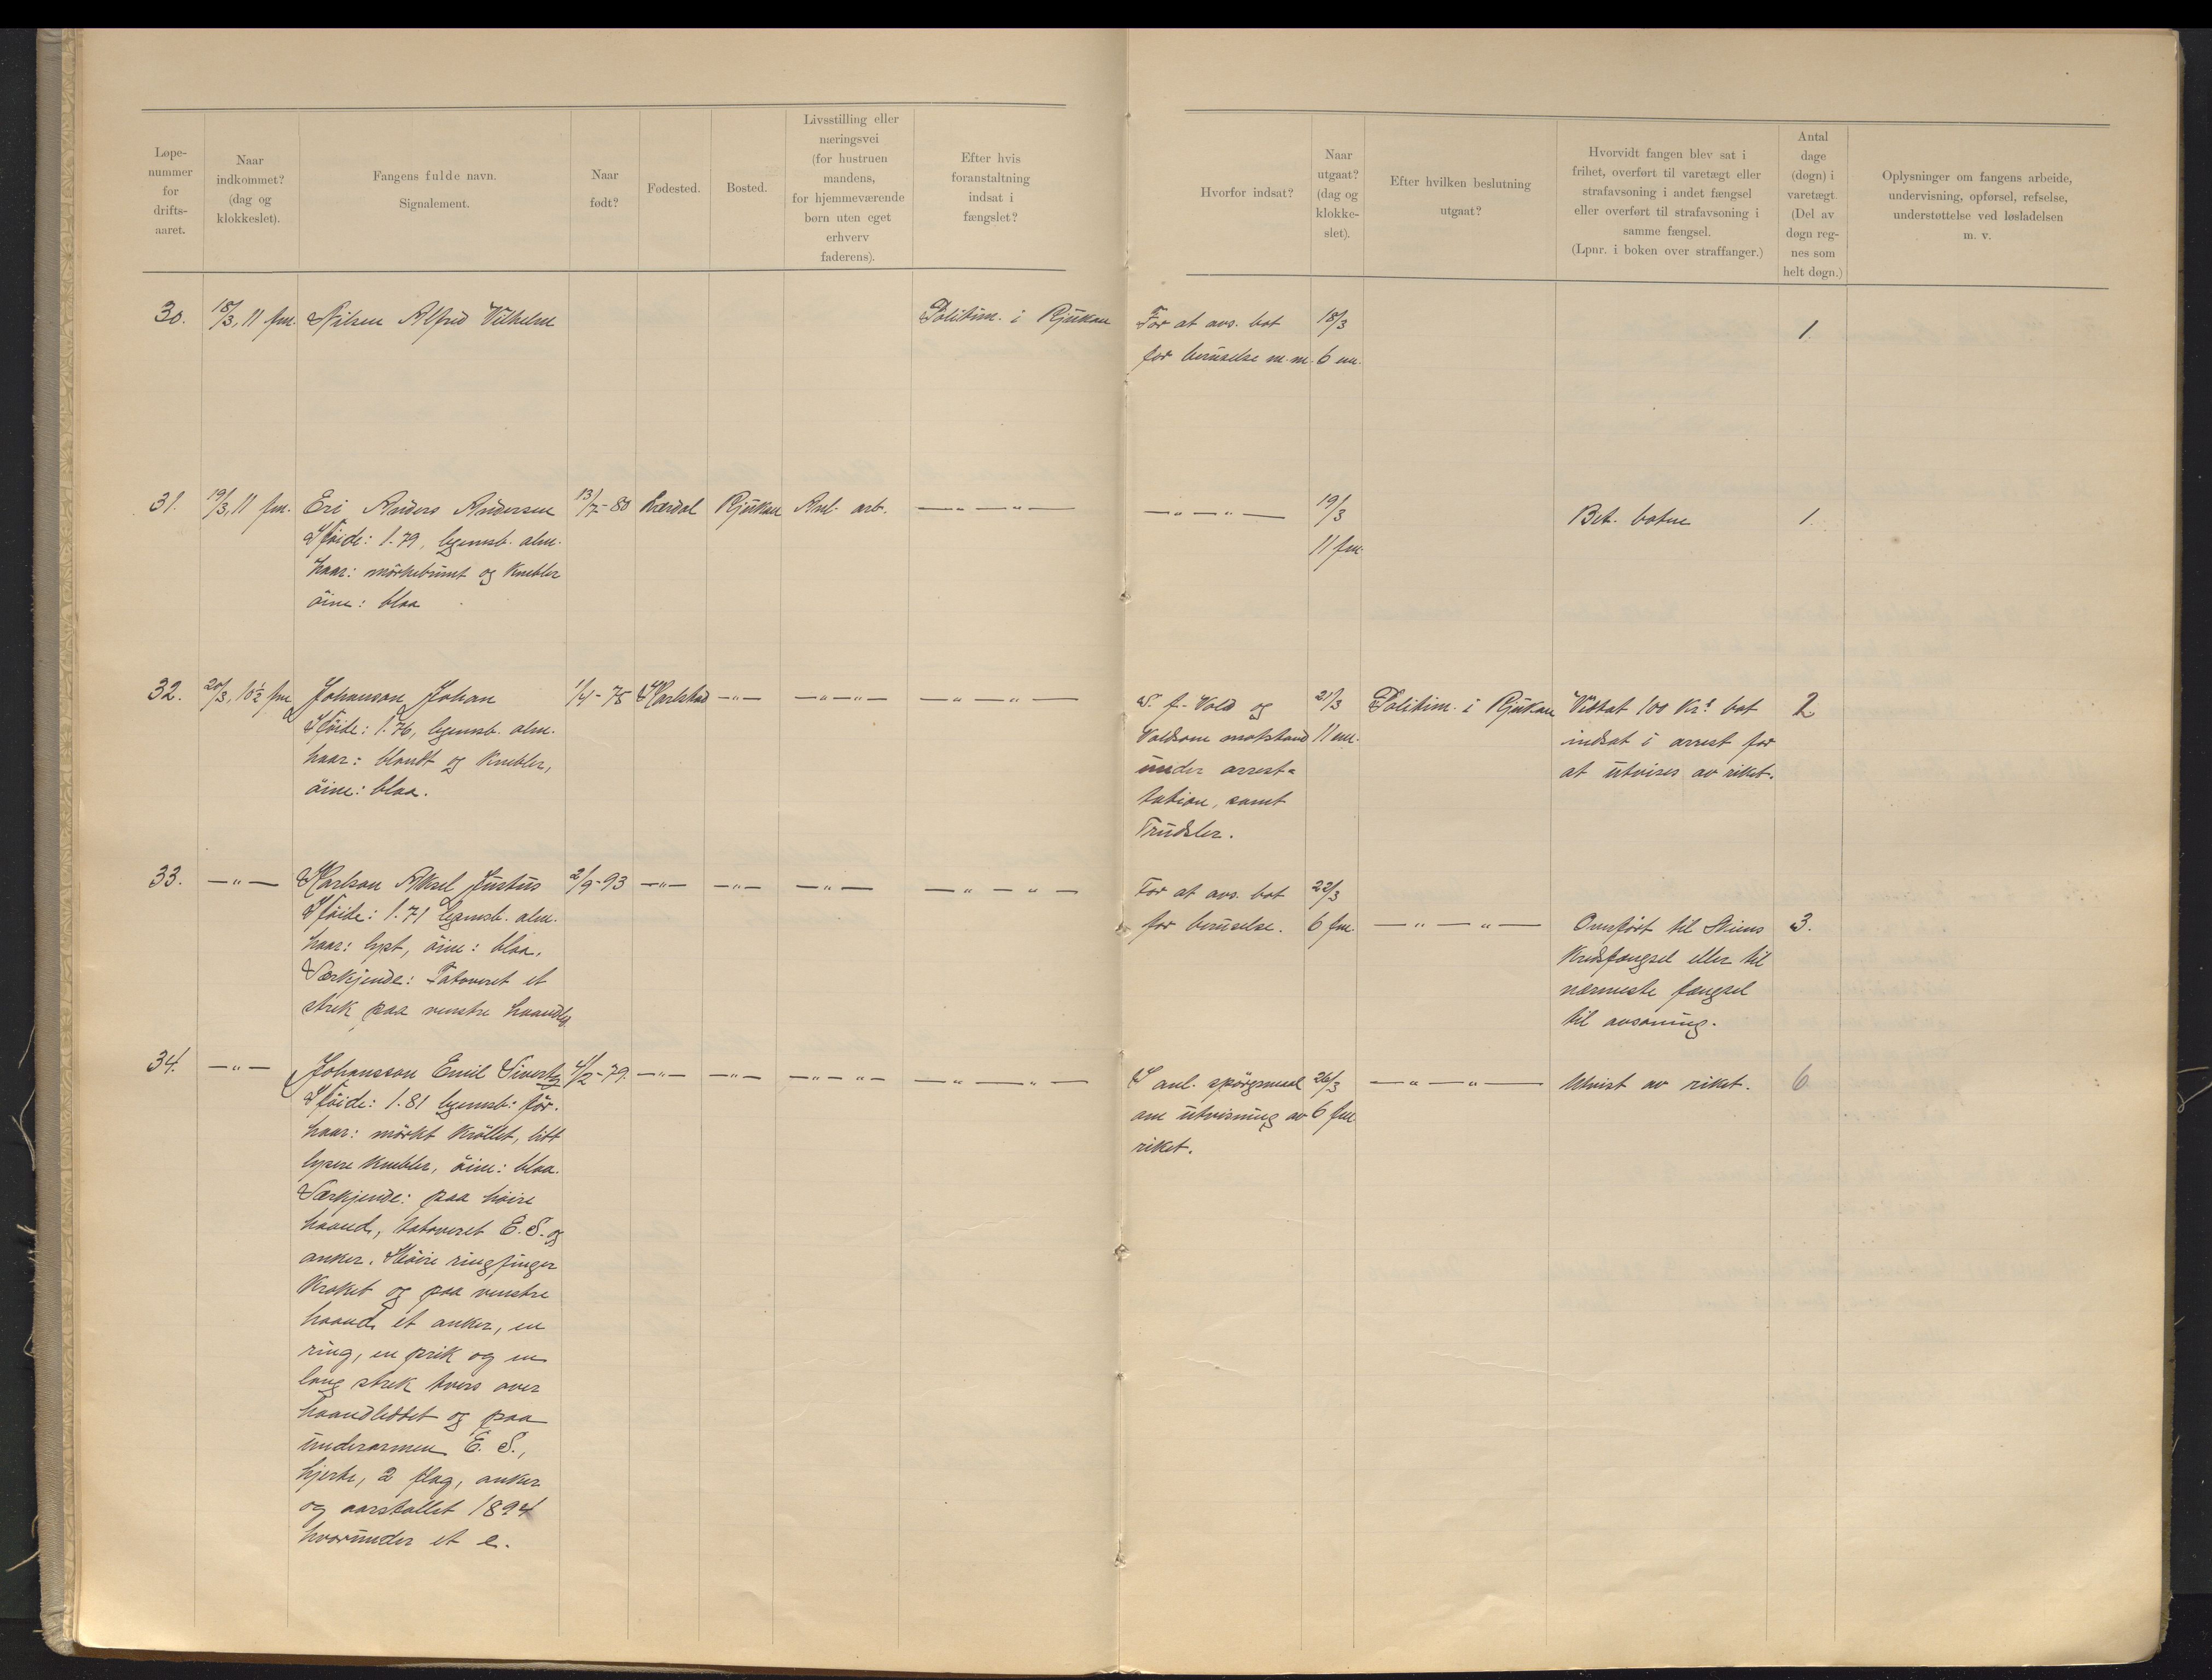 Løpe-
nummer
for
drifts-
aaret.
Naar
indkommet?
(dag og
klokkeslet).
Fangens fulde navn.
Signalement.
Naar
født?
Fødested.
Bosted.
Livsstilling eller
næringsvei
(for hustruen
mandens,
for hjemmeværende
børn uten eget
erhverv
faderens).
Efter hvis
foranstaltning
indsat i
fængslet?
Hvorfor indsat?
Naar
utgaat?
(dag og
klokke-
slet).
Efter hvilken beslutning
utgaat?
Hvorvidt fangen blev sat i
frihet, overført til varetægt eller
strafavsoning i andet fængsel
eller overført til strafavsoning i
samme fængsel.
(Lpnr. i boken over straffanger.)
Antal
dage
(døgn) i
varetægt.
(Del av
døgn reg-
nes som
helt døgn.)
Oplysninger om fangens arbeide,
undervisning, opførsel, refselse,
understøttelse ved løsladelsen
m. v.
30.
18/3, 11 fm.
Nilsen Alfred Vilhelm
Politim. i Rjukan
For at avs. bot
for beruselse m.m.
18/3
6 em.
1.
31.
19/3, 11 fm.
Eri Anders Andersen
Høide: 1.79, legemsb. alm.
haar: mørkebrunt og Knebler
øine: blaa
13/7-80
Lærdal
Rjukan
Anl. arb.
— „ — „ —
— „ — „ —
19/3
11 fm.
Bet. boten
1.
32.
20/3, 10½ fm
Johanson Johan
Høide: 1.76, legemsb. alm.
haar: blondt og Knebler,
øine: blaa.
1/4-75
Karlstad
— „ —
— „ — „ —
— „ — „ —
S. f. Vold og
Voldsom motstand
under arrest=
tation, samt
Trudsler.
21/3
11 em.
Politim. i Rjukan
Vedtat 100 Kr.s bot
indsat i arrest for
at utvises av riket.
2
33.
— „ —
Karlson Aksel Justus
Høide: 1.71 legemsb. alm.
haar: lyst, øine: blaa.
Særkjende: Tatoveret et
strek paa venstre haandleg
2/9-93
— „ —
— „ —
— „ —
— „ — „ —
For at avs. bot
for beruselse.
22/3
6 fm.
— „ — „ —
Overført til Skiens
Kredsfængsel eller til
nærmeste fængsel
til avsoning.
3.
34.
— „ —
Johansson Emil Sivert
Høide: 1.81 legemsb: før.
haar: mørkt krøllet, litt
lysere knebler, øine: blaa.
Særkjende: paa høire
haand, tatoveret E. S. og
anker. Høire ringfinger
kroket og paa venstre
haand et anker, en
ring, en prik og en
lang strek tvers over
haandleddet og paa
underarmen E. S.,
hjerte, 2 flag, anker
og aarstallet 1894
hvorunder et e.
4/2-79.
— „ —
— „ —
— „ — „ —
— „ — „ —
I anl. spørgsmaal
om utvisning av
riket.
26/3
6 fm
— „ — „ —
Utvist av riket.
6